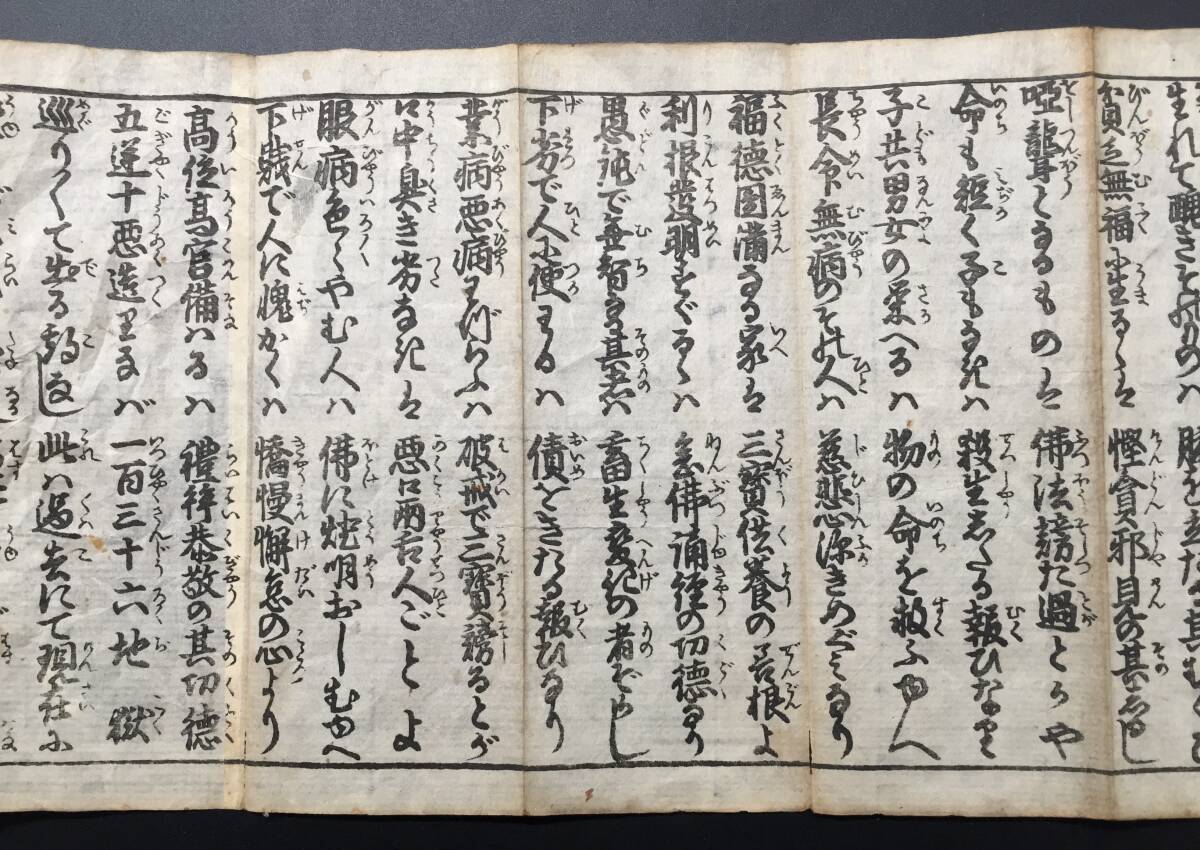 生れて醜きそのものハ
貧乏無福に生るゝは 慳貪邪見の其しるし
啞聾となるものは 佛法謗た過とかや
命も短く子もなきは 殺生したる報ひなり
子共男女の栄へるハ 物の命を救ふゆへ
長命無病のその人ハ 慈悲心深きめぐみなり
福德圓滿なる家は 三寶供養の善根よ
利根發明すぐるゝハ 念佛誦經の功德なり
愚鈍で無智な其者ハ 畜生変化の者ぞかし
下劣で人に便わるハ 債をきたる報ひなり
業病悪病わづらふハ 破戒で三寶謗るとが
口中臭き劣なきは 悪口兩舌人ごとよ
眼病色〳〵やむ人ハ 佛に燈明おしむゆへ
下賤で人に愧かくハ 憍慢懈怠の心より
髙位髙官備ハるハ 禮拝恭敬の其功德
五逆十悪造りなバ 一百三十六地獄
巡りくて出る期なし 此ハ過去にて現在に